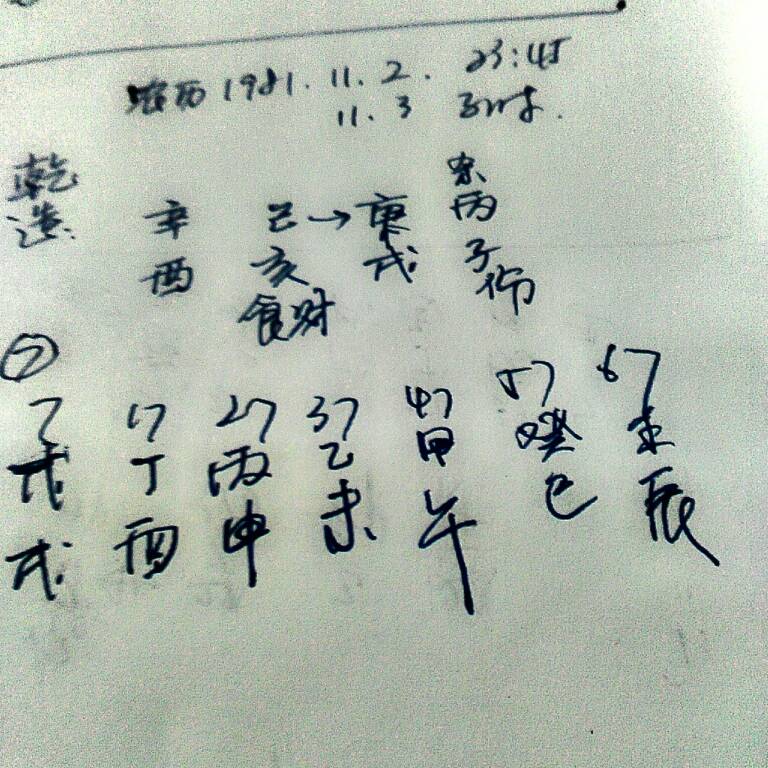 农历 1981. 11. 2. 23:45
11. 3 子时.
杀
乾造 辛 己 → 庚 丙
酉 亥 戌 子
食财 伤
⑦
7 17 27 37 47 57 67
戊 丁 丙 乙 甲 癸 壬
戌 酉 申 未 午 巳 辰